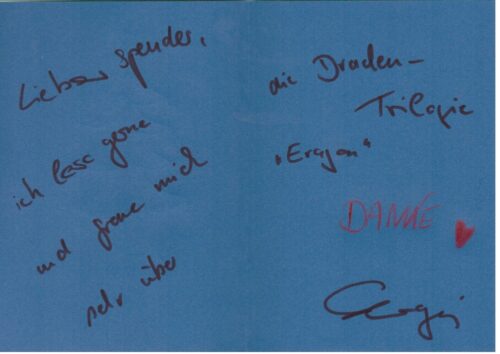 Lieber Spender,
ich lese gerne
und freue mich
sehr über
die Drachen-
Trilogie
„Eragon“
DANKE